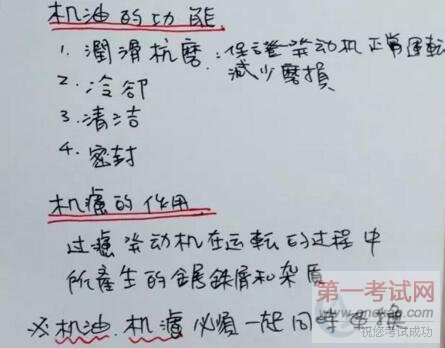 机油的功能
1. 潤滑抗磨：保證发动机正常運転
減少磨損
2. 冷卻
3. 清洁
4. 密封
机濾的作用
过濾发动机在运転的过程中
所產生的金属鉄屑和杂质
※机油.机濾必須一起同時更换
第一考试网
祝您考试成功